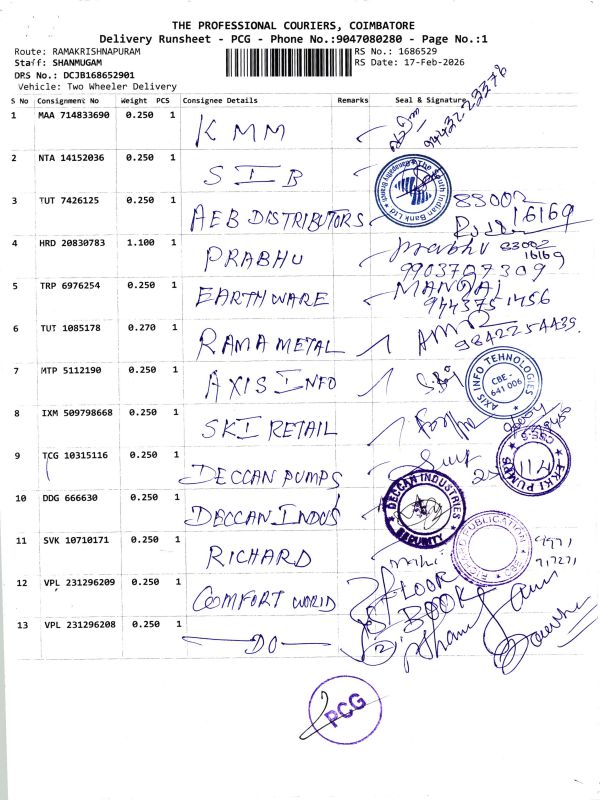 THE PROFESSIONAL COURIERS, COIMBATORE
Delivery Runsheet - PCG - Phone No.:9047080280 - Page No.:1
Route: RAMAKRISHNAPURAM RS No.: 1686529
Staff: SHANMUGAM RS Date: 17-Feb-2026
DRS No.: DCJB168652901
Vehicle: Two Wheeler Delivery
S No Consignment No Weight PCS Consignee Details Remarks Seal & Signature
1 MAA 714833690 0.250 1 KMM
2 NTA 14152036 0.250 1 SIB
The South Indian Bank Ltd
3 TUT 7426125 0.250 1 AEB DISTRIBUTORS 83002
16169
4 HRD 20830783 1.100 1 PRABHU Prabhu 83002
16169
9903727309
5 TRP 6976254 0.250 1 EARTHWARE
9443751456
6 TUT 1085178 0.270 1 RAMA METAL
9842254439.
7 MTP 5112190 0.250 1 AXIS INFO
AXIS INFO TEHNOLOGIES
CBE -
641 006
8 IXM 509798668 0.250 1 SKI RETAIL
9 TCG 10315116 0.250 1 DECCAN PUMPS
EKKI PUMPS
10 DDG 666630 0.250 1 DECCAN INDUS
DECCAN INDUSTRIES
SECURITY
11 SVK 10710171 0.250 1 RICHARD
PUBLICATION
12 VPL 231296209 0.250 1 COMFORT WORLD
FLOOR
BOOK
13 VPL 231296208 0.250 1 DO
PCG